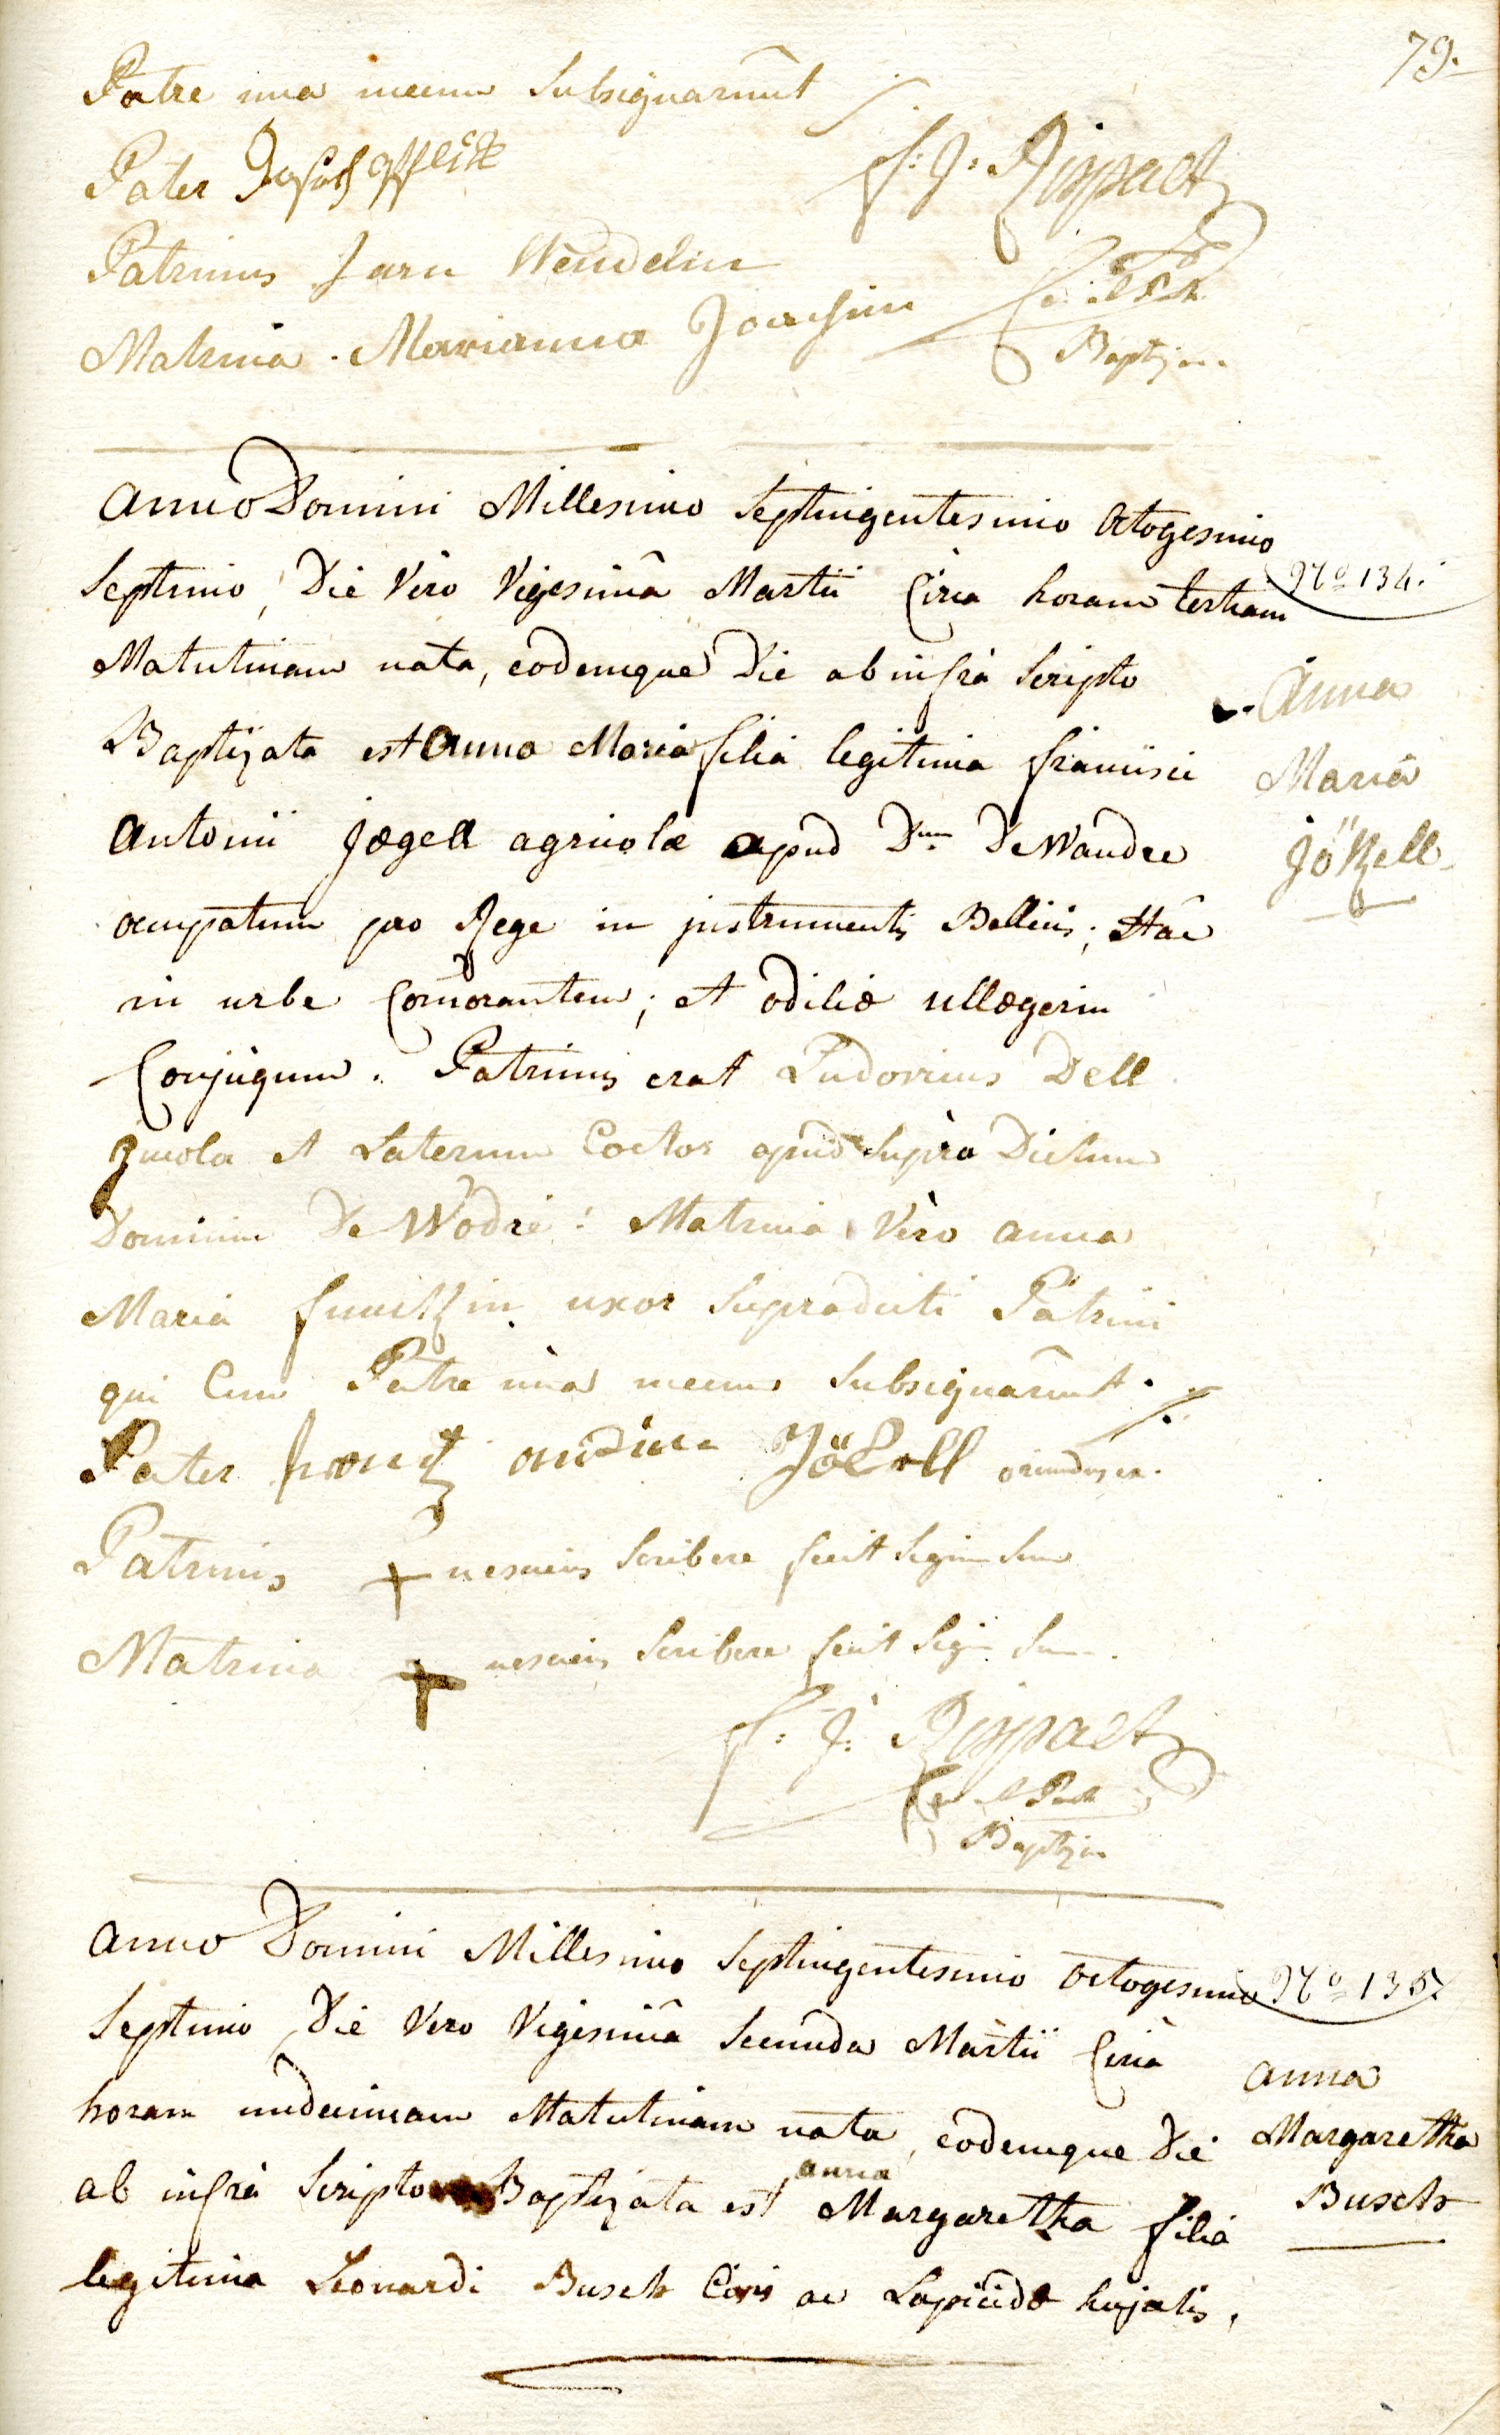 79.
Patre una mecum Subsignarunt
Pater Joseph
F: J: Rispact
Patrinus Jarn Wendelin
Matrina. Marianna Joachim
Baptizans
Anno Domini Millesimo Septingentesimo Octogesimo
Septimo, Die Vero Vigesimâ Martii Circa horam tertiam
No 134.
Matutinam nata, eodemque Die ab infrà Scripto
Baptizata est Anna Maria filia legitima francisci
Antonii Jægell agricolæ apud Dum De Wandre
occupatum pro Rege in justrumentis Bellicis; Hac
in urbe Com̄orantem; et odiliæ ullægerin
Conjugum. Patrinus erat Ludovicus Dell
Incola et Laterum Coctor apud Suprà Dictum
Dominum De Wodré: Matrina Vèro anna
Maria uxor Supradicti Patrini
qui Cum Patre unà mecum Subsignarunt.
Anna
Maria
Jökell
Pater frantz Jökell oriundus ex.
Patrinus + nescius Scribere fecit Signum Suum
Matrina + nesciens Scribere fecit Sign Sum.
F: J: Rispact
Baptizans
Anno Domini Millesimo Septingentesimo Octogesimo
No 135.
Septimo, Die Vero Vigesimâ Secunda Martii Circà
horam undecimam Matutinam nata, eodemque Die
ab infrà Scripto Baptizata est anna Margaretha filia
legitima Leonardi Busch Civis ac Lapicidæ hujatis,
Anna
Margaretha
Busch